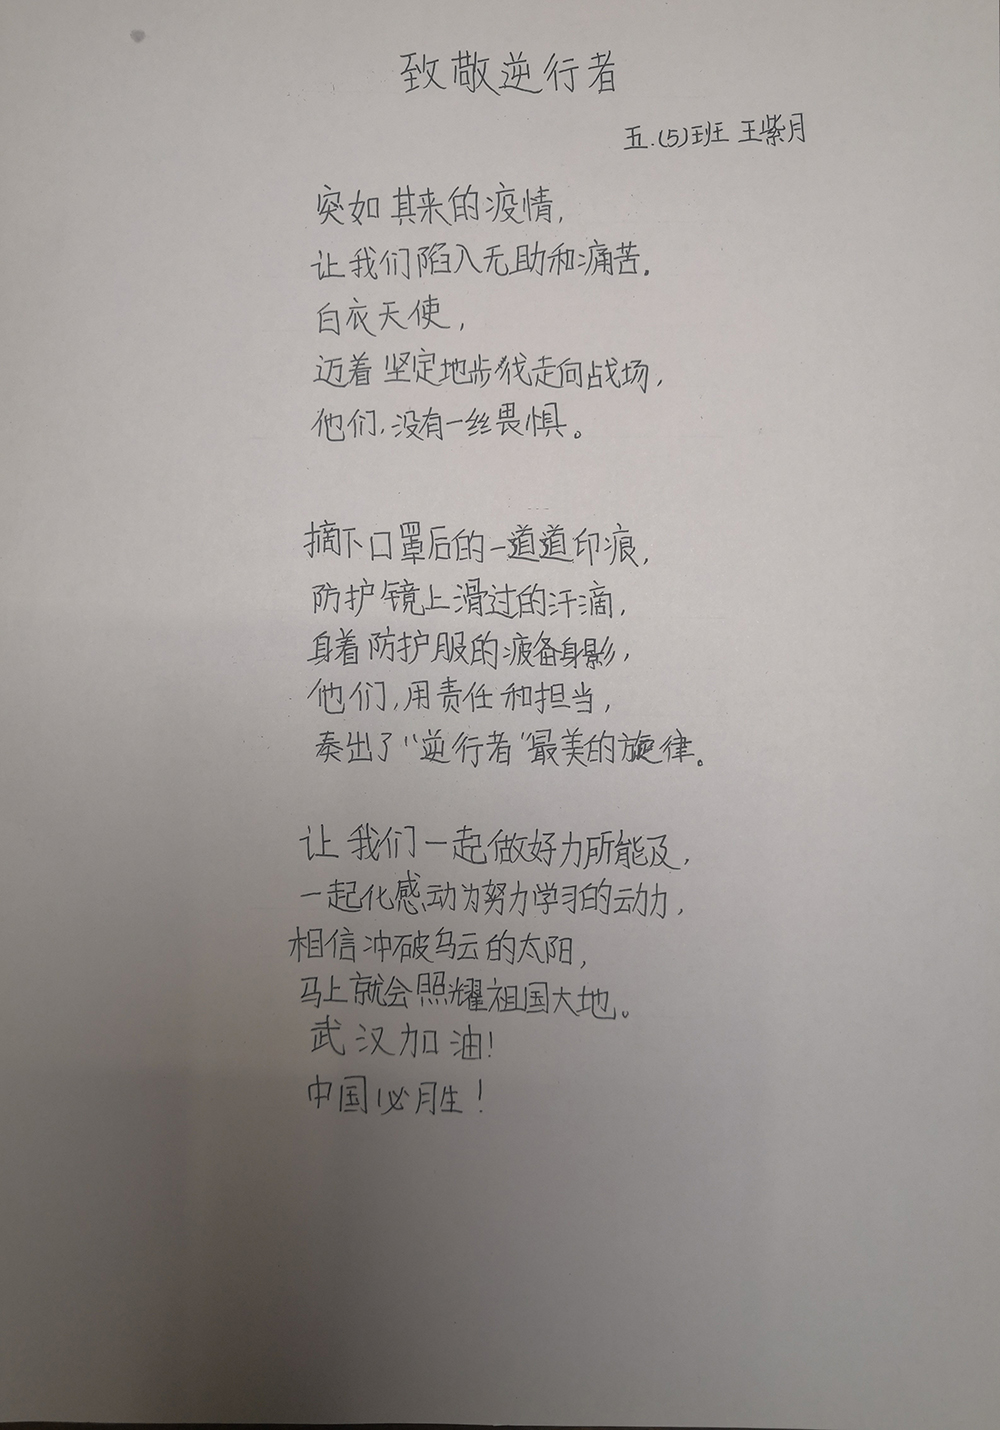 致敬逆行者
五.(5)班 王紫月
突如其来的疫情,
让我们陷入无助和痛苦.
白衣天使,
迈着坚定地步伐走向战场,
他们,没有一丝畏惧。
摘下口罩后的一道道印痕,
防护镜上滑过的汗滴,
身着防护服的疲备身影,
他们,用责任和担当,
奏出了“逆行者”最美的旋律。
让我们一起做好力所能及,
一起化感动为努力学习的动力,
相信冲破乌云的太阳,
马上就会照耀祖国大地。
武汉加油!
中国必胜!